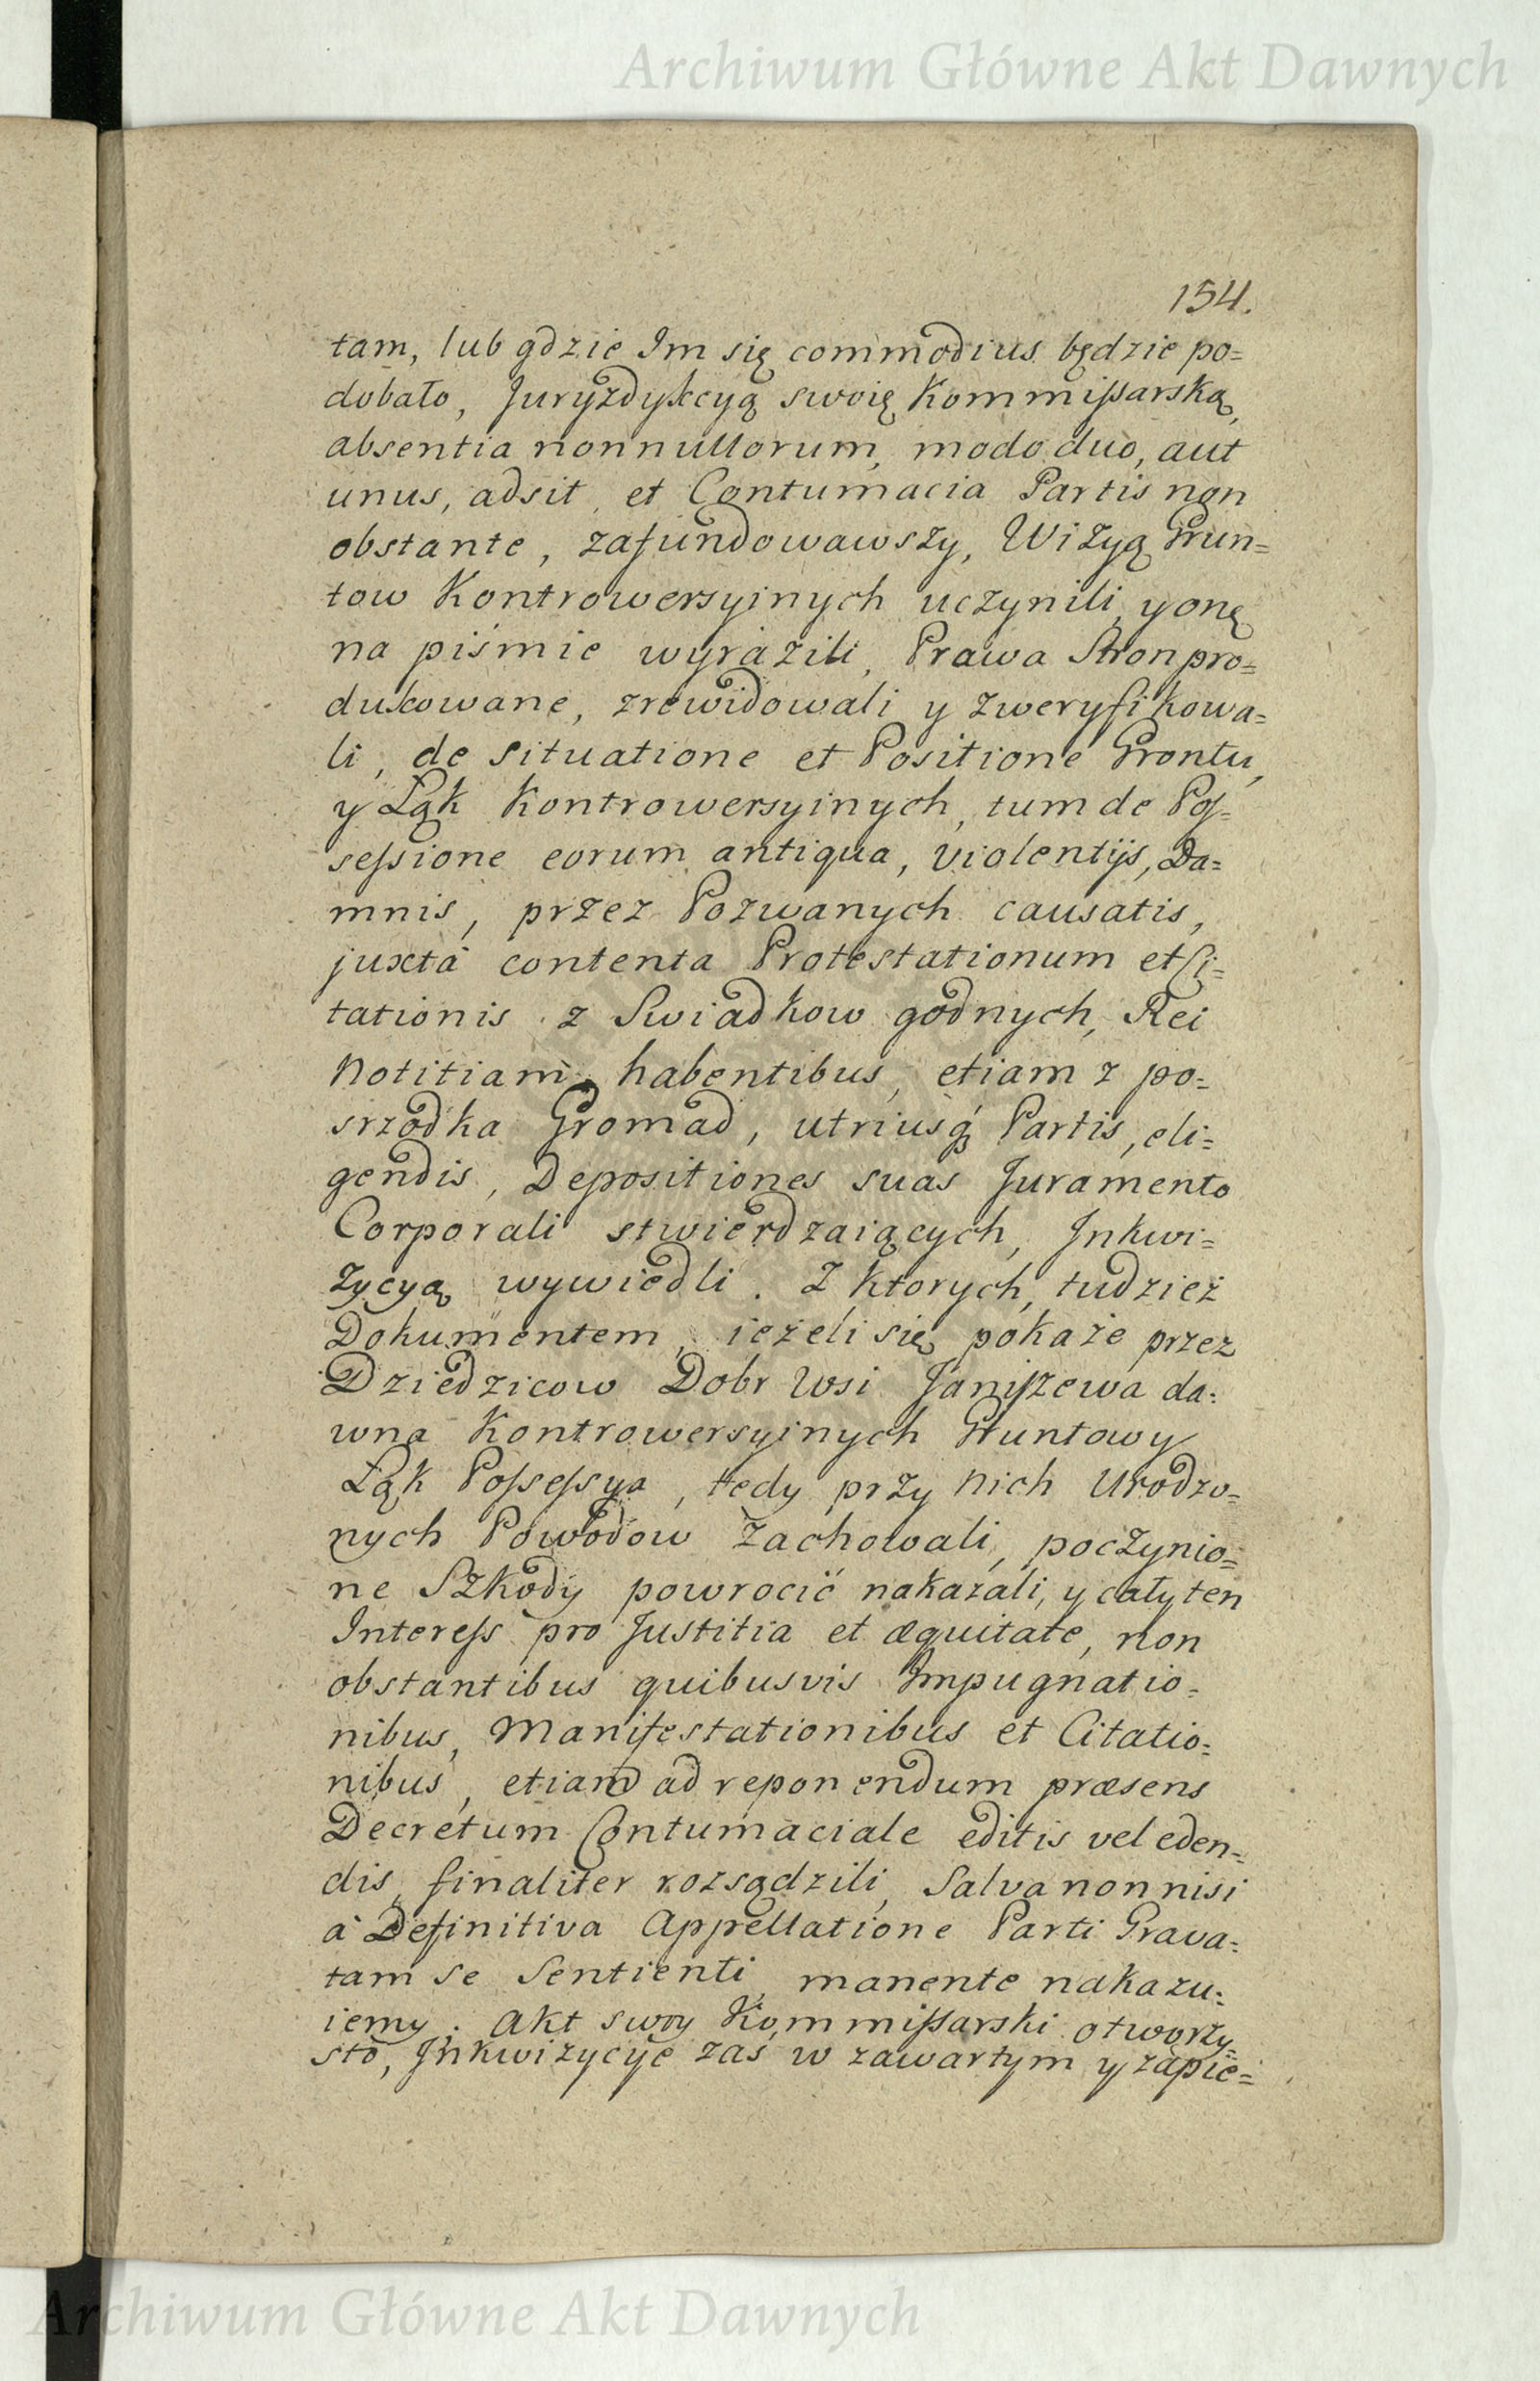 Archiwum Główne Akt Dawnych
154.
tam, lub gdzie Im się commodius będzie po=
dobało, Juryzdykcyą swoię Kommissarską,
absentia nonnullorum, modo duo, aut
unus, adsit, et Contumacia Partis non
obstante, zafundowawszy, Wizyą Grun=
tow Kontrowersyinych uczynili, y onę
na piśmie wyrazili, Prawa Stron pro=
dukowane, zrewidowali y zweryfikowa=
li, de situatione et Positione Grontu,
y Łąk Kontrowersyinych, tum de Pos=
sessione eorum antiqua, violentijs, Da=
mnis, przez Pozwanych causatis,
juxta contenta Protestationum et Ci=
tationis z Swiadkow godnych, Rei
Notitiam habentibus, etiam z po=
srzodka Gromad, utriusq́ Partis, eli=
gendis, Depositiones suas Juramento
Corporali stwierdzaiących, Inkwi=
zycyą wywiedli. Z ktorych, tudzież
Dokumentem, ieżeli się pokaże przez
Dziedzicow Dobr Wsi Janiszewa da=
wna Kontrowersyinych Gruntow y
Łąk Possessya, tedy przy nich Urodzo=
nych Powodow zachowali, poczynio=
ne Szkody powrocić nakazali, y cały ten
Interess pro Justitia et æquitate, non
obstantibus quibusvis Impugnatio=
nibus, Manifestationibus et Citatio=
nibus, etiam ad reponendum præsens
Decretum Contumaciale editis vel eden=
dis, finaliter rozsądzili, Salva nonnisi
à Definitiva Appellatione Parti Grava=
tam se Sentienti, manente nakazu=
iemy. Akt swoy Kommissarski otworzy=
sto, Inkwizycye zaś w zawartym y zapie=
Archiwum Główne Akt Dawnych